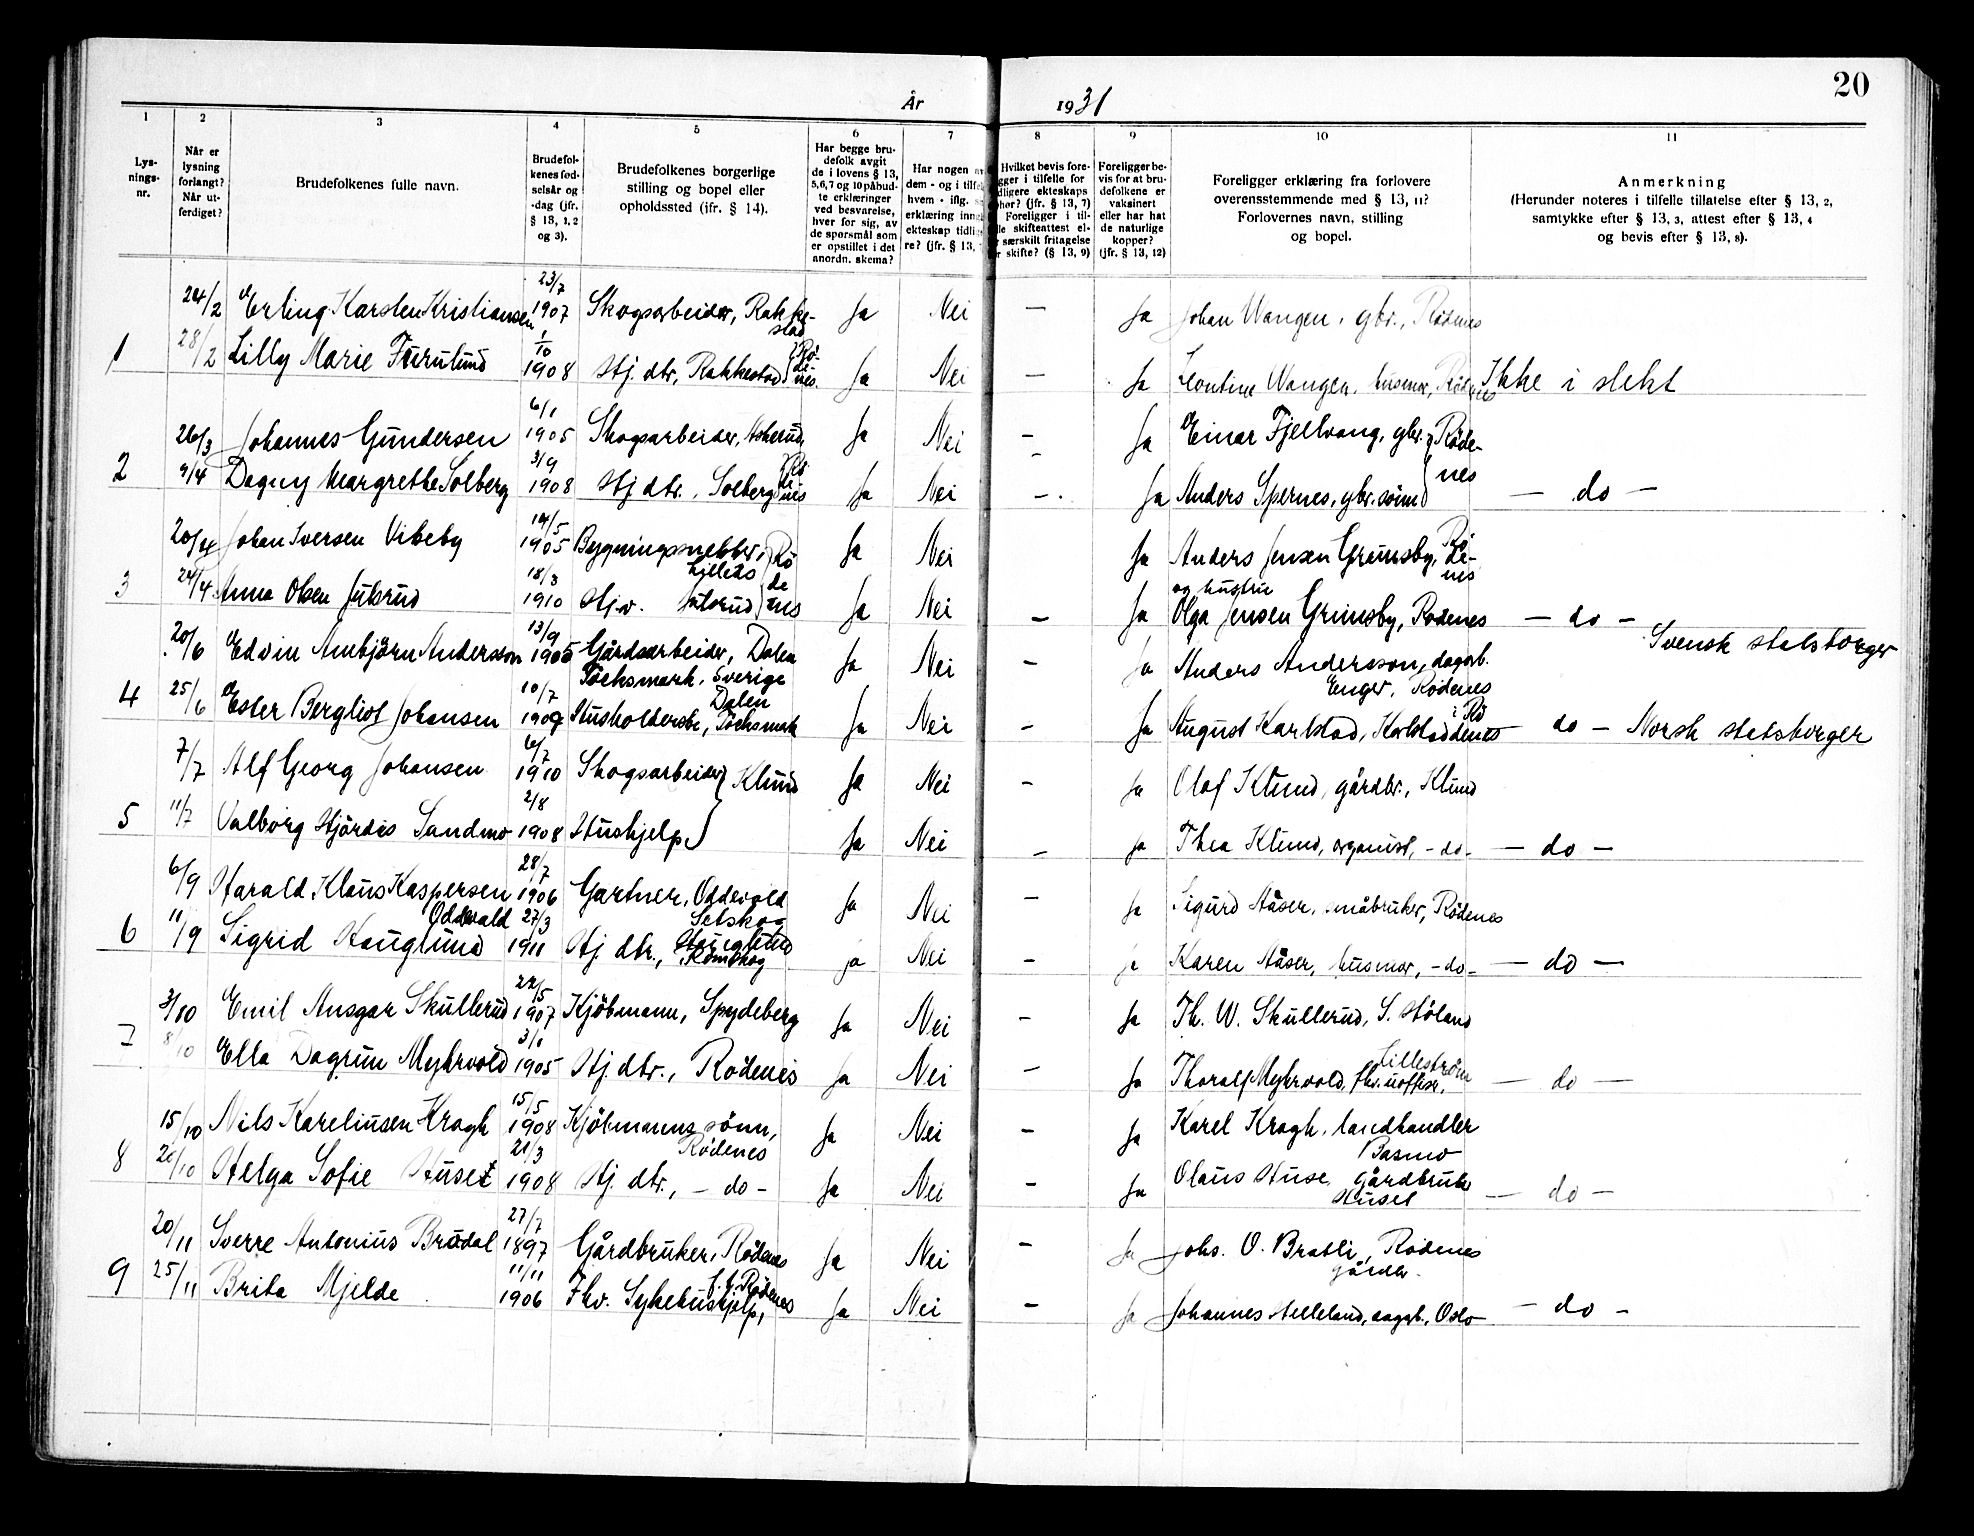 20
År 1931
1 2 3 4 5 6 7 8 9 10 11
Lys-
nings-
nr.
Når er
lysning
forlangt?
Når ut-
ferdiget?
Brudefolkenes fulle navn.
Brudefol-
kenes fød-
selsår og
-dag (jfr.
§ 13, 1, 2
og 3).
Brudefolkenes borgerlige
stilling og bopel eller
opholdssted (ifr. § 14).
Har begge bru-
defolk avgit
de i lovens § 13,
5,6,7 og 10 påbud-
te erklæringer
ved besvarelse,
hver for sig, av
de spørsmål som
er opstillet i det
anordn. skema?
Har nogen av
dem - og i tilfe
hvem - iflg.
erklæring inn
ekteskap tidli
re? (jfr. § 13,
Hvilket bevis fore-
gger i tilfelle for
dligere ekteskaps
phør? (jfr. § 13, 7)
Foreligger i til-
lle skifteattest el-
r særskilt fritagelse
r skifte? (§ 13, 9)
Foreligger be-
vis for at bru-
defolkene er
vaksinert
eller har hat
de naturlige
kopper?
(jfr. § 13, 12)
Foreligger erklæring fra forlovere
overensstemmende med § 13, 11?
Forlovernes navn, stilling
og bopel.
Anmerkning
(Herunder noteres i tilfelle tillatelse efter § 13, 2,
samtykke efter § 13, 3, attest efter § 13, 4
og bevis efter § 13, 8).
24/2 Erling Karsten Kristiansen 23/7 1907 Skogsarbeider, Rakkestad Ja Nei — Ja Johan Wangen, gbr., Rødenes
1 28/2 Lilly Marie Furulund 1/10 1908 Hj. dtr, Rakkestad } Rödenes Ja Nei — Ja Leontine Wangen, husmor, Rødenes Ikke i slekt
26/3 Johannes Gundersen 6/1 1905 Skogsarbeider, Askerud Ja Nei — Ja Einar Fjellvang, gbr. } Rödenes
2 9/4 Dagny Margrethe Solberg 3/9 1908 Hj dtr., Solberg } i Rödenes Ja Nei — Ja Anders Spernes, gbr.sönn — do —
20/4 Johan Iversen Vibeby 14/5 1905 Bygningssnekker, Ja Nei Ja Anders Jensen Grimsby, Rödenes
3 24/4 Anna Olsen Julsrud 18/3 1910 Hj.v. Julsrud } Rödenes Ja Nei — Ja og hustru Olga Jensen Grimsby, Rødenes — do —
20/6 Edvin Ambjörn Andersson 13/9 1905 Gårdsarbeider, Dalen Töcksmark, Sverige Ja Nei — Ja Anders Andersson, dagarb. Enger, Rödenes Svensk statsborger
4 25/6 Ester Bergliot Johansen 10/7 1909 Husholderske, Dalen Töcksmark Ja Nei — Ja August Karlstad, Karlstad i Rödenes — do — Norsk statsborger
7/7 Alf Georg Johansen 6/7 1910 Skogsarbeider } Klund Ja Nei — Ja Olaf Klund, gårdbr., Klund
5 11/7 Valborg Hjördis Sandmo 2/8 1908 Hushjelp Ja Nei — Ja Thea Klund, organist, - do - — do —
6/9 Harald Klaus Kaspersen Oddevald 28/7 1906 Gartner, Oddevold Setskog Ja Nei — Ja Sigurd Aaser, småbruker, Rödenes
6 11/9 Sigrid Hauglund 27/3 1911 Hj. dtr., Hauglund Römskog ja Nei — ja Karen Aaser, husmor, - do - — do —
3/10 Emil Ansgar Skullerud 22/5 1907 Kjöbmann, Spydeberg Ja Nei — Ja Th. W. Skullerud, S. Höland
7 8/10 Ella Dagrun Myhrvold 3/1 1905 Hj. dtr., Rödenes Ja Nei — Ja Thoralf Myhrvold, fhv. uoffiser, Lilleström — do —
15/10 Nils Kareliusen Kragh 15/5 1908 Kjöbmannssönn, Rödenes Ja Nei — Ja Karel Kragh, landhandler Basmo
8 20/10 Helga Sofie Huset 21/3 1908 Hj. dtr., — do — Ja Nei — Ja Olaus Huse, gårdbruk Huset — do —
20/11 Sverre Antonius Brudal 27/7 1897 Gårdbruker, Rödenes Ja Nei — Ja Johs. O. Bratli, Rödenes gårdbr.
9 25/11 Brita Mjelde 11/11 1906 Fhv. Sykehushjelp, Rödenes Ja Nei — Ja Johannes Helleland, dagarb., Oslo — do —